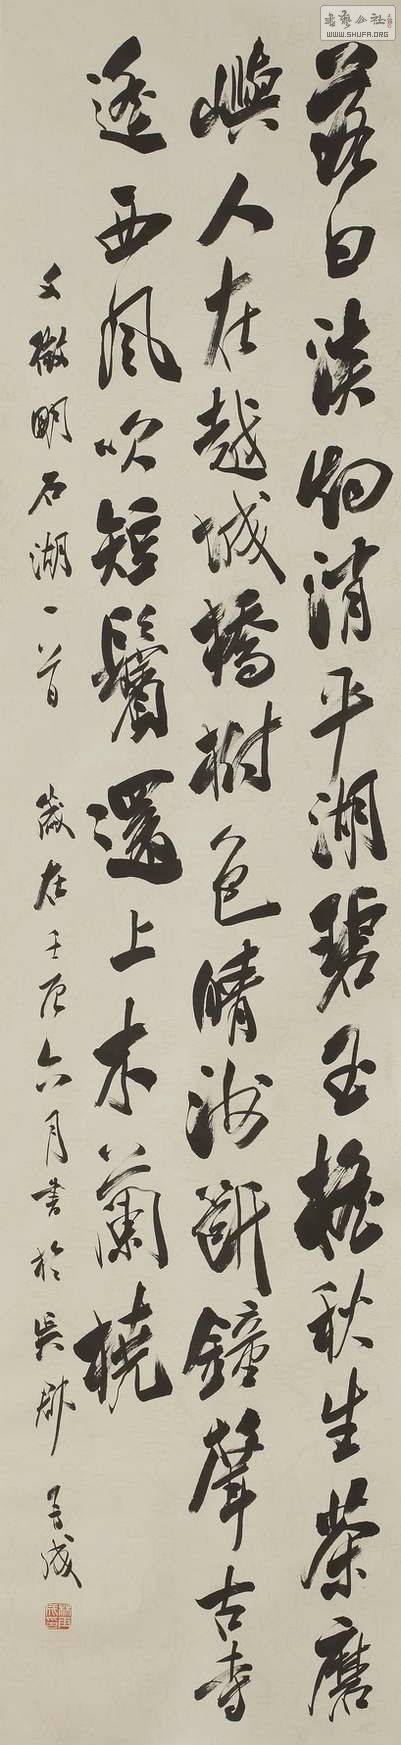 書藝公社
WWW.SHUFA.ORG
落日淡烟消平湖碧玉搖秋生茶磨
嶼人在越城橋樹色晴洲斷鐘聲古寺
遙西風吹短鬢還上木蘭橈
文徵明石湖一首 歲在壬辰六月書於吳郡